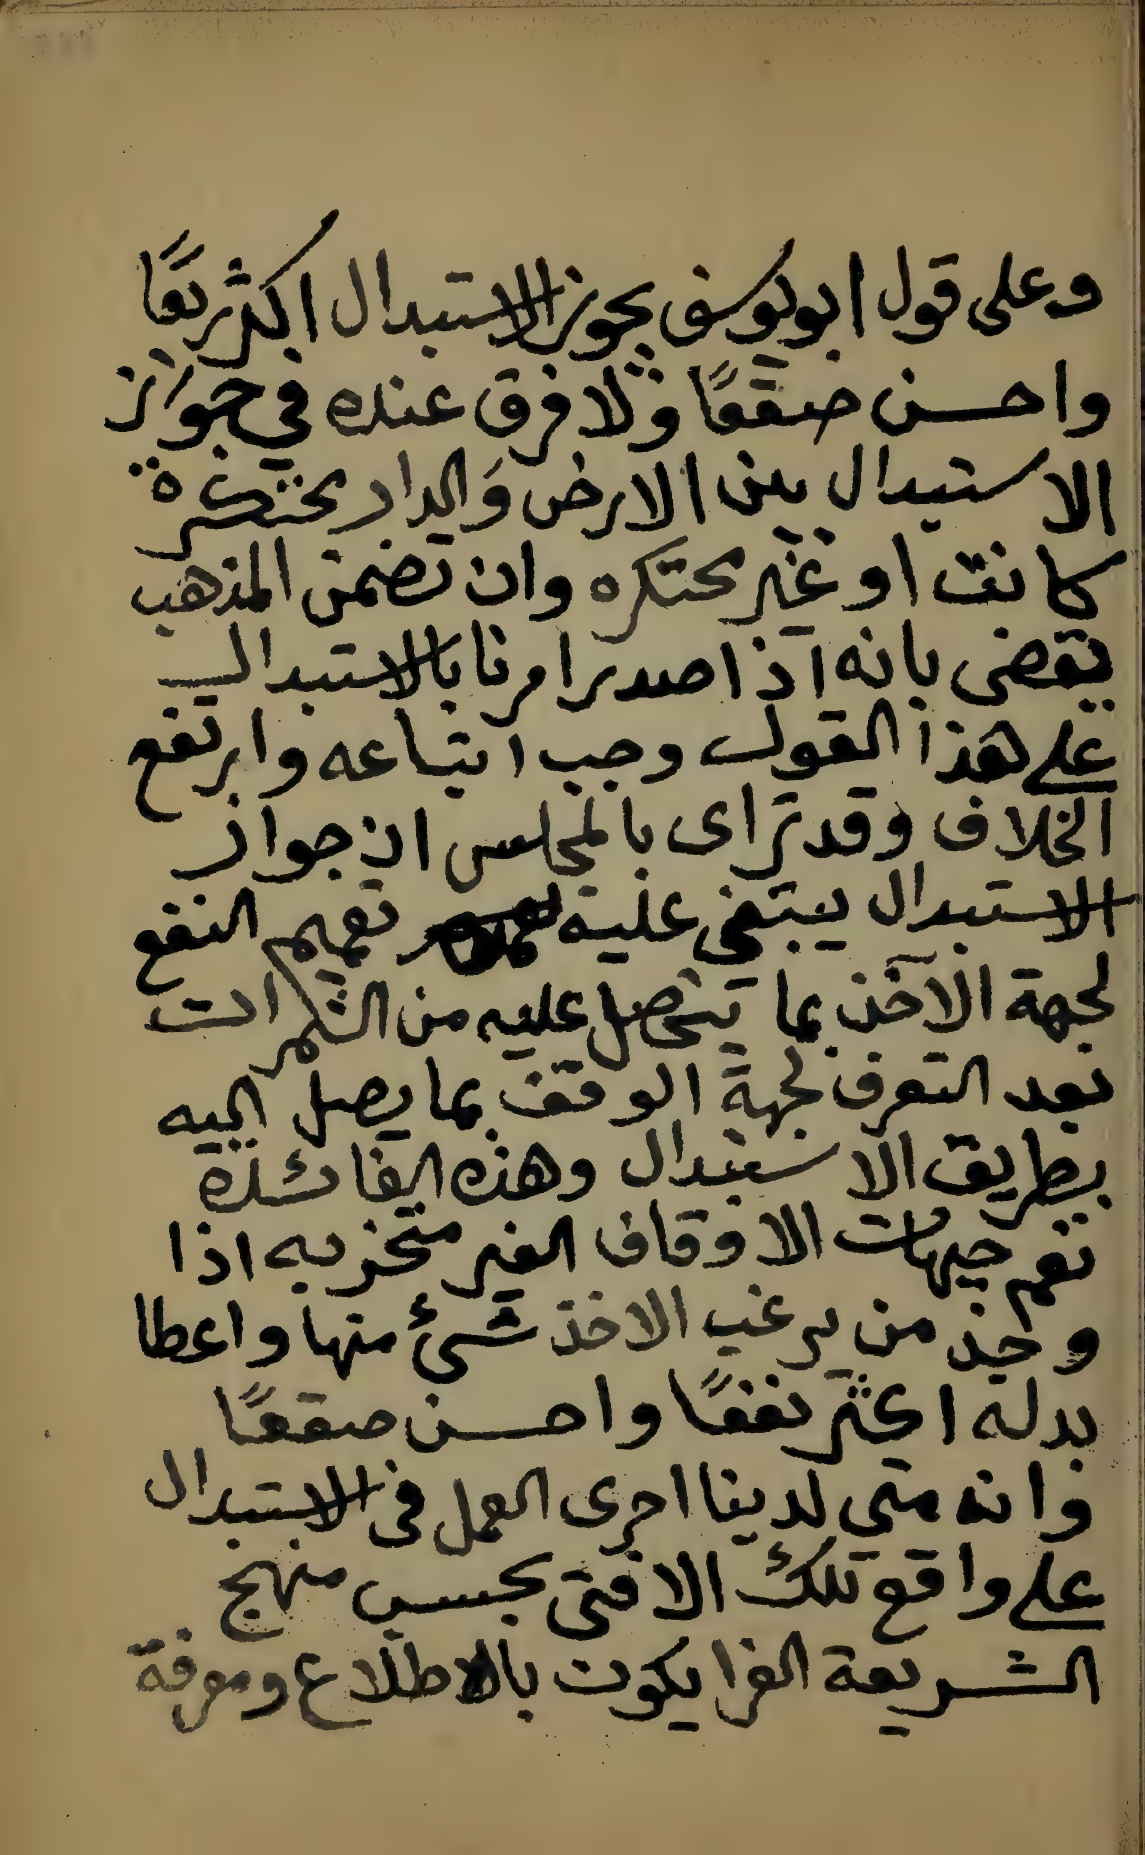 وعلى قول ابويوسف يجوز الاستبدال اكثر ريعًا
واحسن صقعًا ولا فرق عنده في جواز
الاستبدال بين الارض والدار محتكرة
كانت او غير محتكره وان نضمن المذهب
يقضى بانه اذا صدر امرنا بالاستبدال
على هذا القول وجب اتباعه وارتفع
الخلاف وقد ترأى بالمجلس ان جواز
الاستبدال يبتنى عليه تعميم النفع
لجهة الآخذ بما يتحصل عليه من الثمرات
بعد التعرف لجهة الوقف بما يصل اليه
بطريق الاستبدال وهذه الفائدة
تعم جهات الاوقاف الغير متخربه اذا
وجد من يرغب الاخذ شئ منها واعطا
بدله اكثر نفعًا واحسن صقعًا
وانه متى لدينا اجرى العمل فى الاستبدال
على واقع تلك الافتى بحسب منهج
الشريعة الغرا يكون بالاطلاع ومعرفة